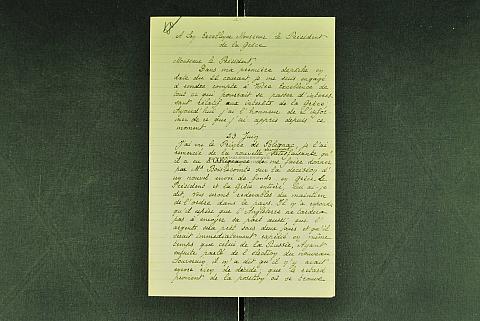 A Son Excellence Monsieur le Président
de la Grèce
Monsieur le Président
Dans ma première dépêche en
date du 22 courant je me suis engagé
à rendre compte à Votre Excellence de
tout ce qui pourrait se passer d'intéres
sant relatif aux intérêts de la Grèce,
Aujourd'hui j'ai l'honneur de l'infor
mer de ce que j'ai appris depuis ce
moment.
23 Juin
J'ai vu le Prince de Polignac, je l'ai
remercié de la nouvelle satisfaisante qu'
il a eu me faire donner
par Mr Boislecomte sur la décision d'
un nouvel envoi de fonds en Grèce. Le
Président et la Grèce entière, lui ai-je
dit, vous seront redevables du maintien
de l'ordre dans le pays. Il m'a répondu
qu'il espère que l'Angleterre ne tardera
pas à envoyer sa part aussi, que l'
argent sera prêt sous deux jours et qu'il
serait immédiatement expédié en même
temps que celui de la Russie, Ayant
ensuite parlé de l'élection du nouveau
Souverain il m'a dit qu'il n'y avait
encore rien de décidé, que le retard
provient de la position où se trouve